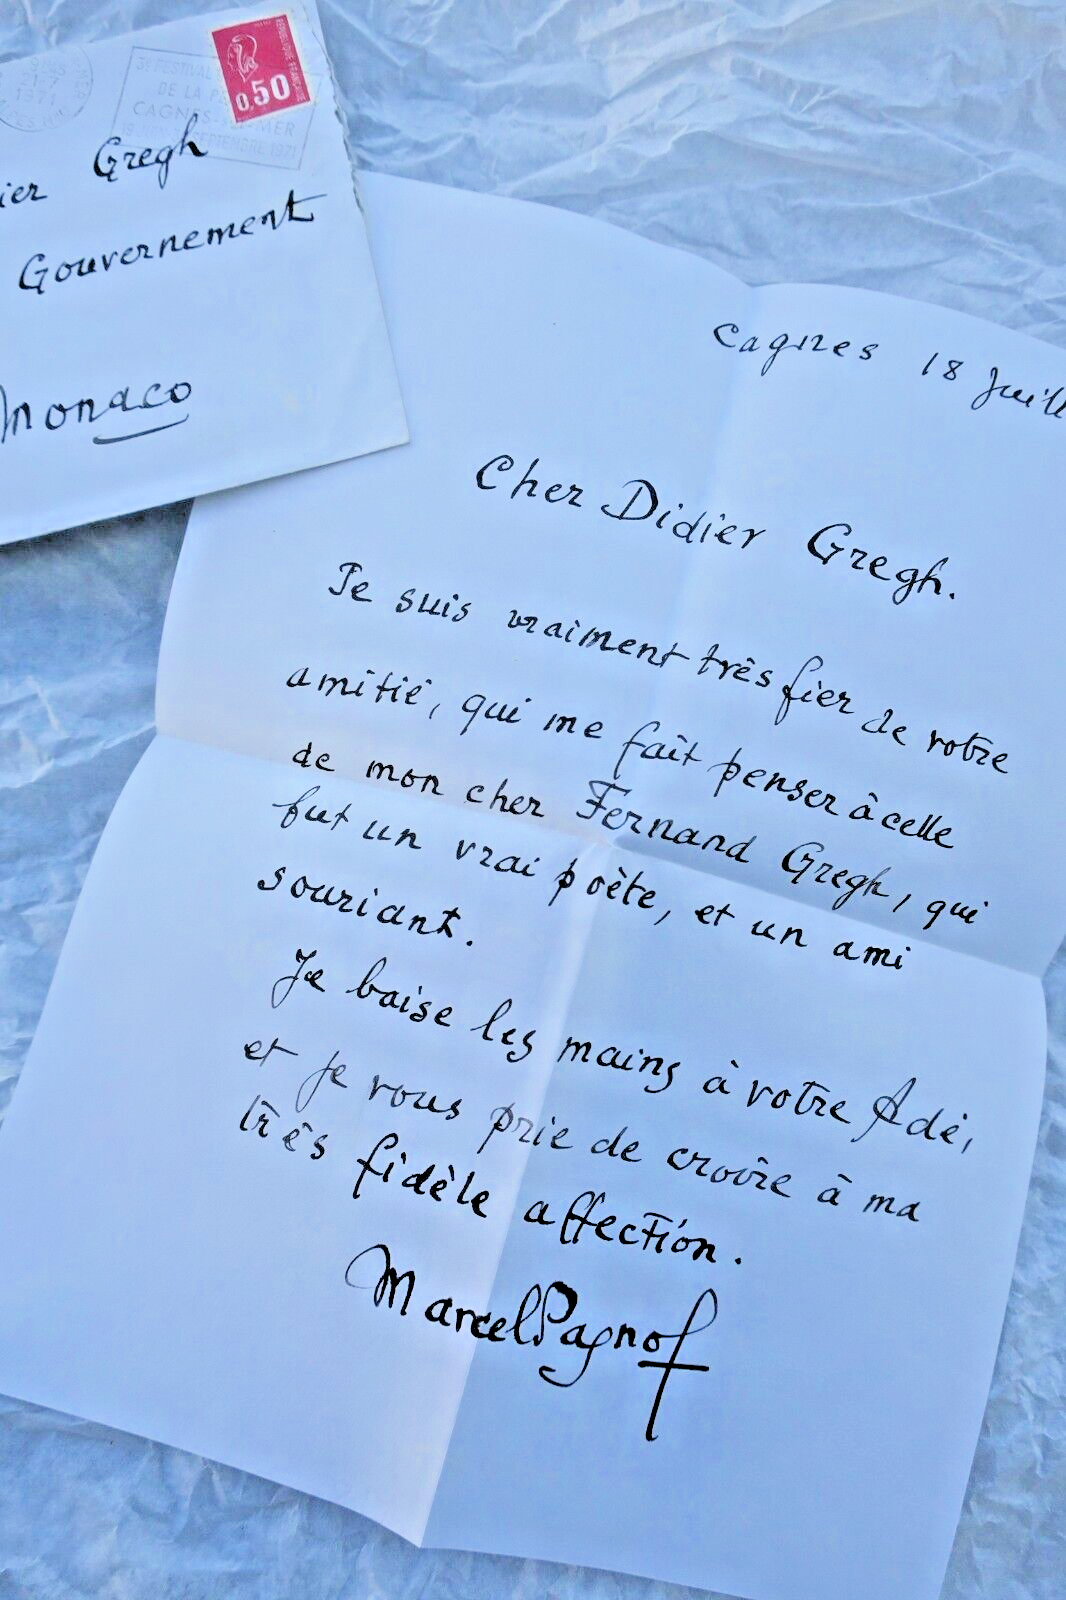 REPUBLIQUE FRANÇAISE
0,50
1971
3e FESTIVAL
DE LA
CAGNES-SUR-MER
SEPTEMBRE 1971
Gregh
Gouvernement
Monaco
Cagnes 18 Juill
Cher Didier Gregh.
Je suis vraiment très fier de votre
amitié, qui me fait penser à celle
de mon cher Fernand Gregh, qui
fut un vrai poète, et un ami
souriant.
Je baise les mains à votre Adé,
et je vous prie de croire à ma
très fidèle affection.
Marcel Pagnol